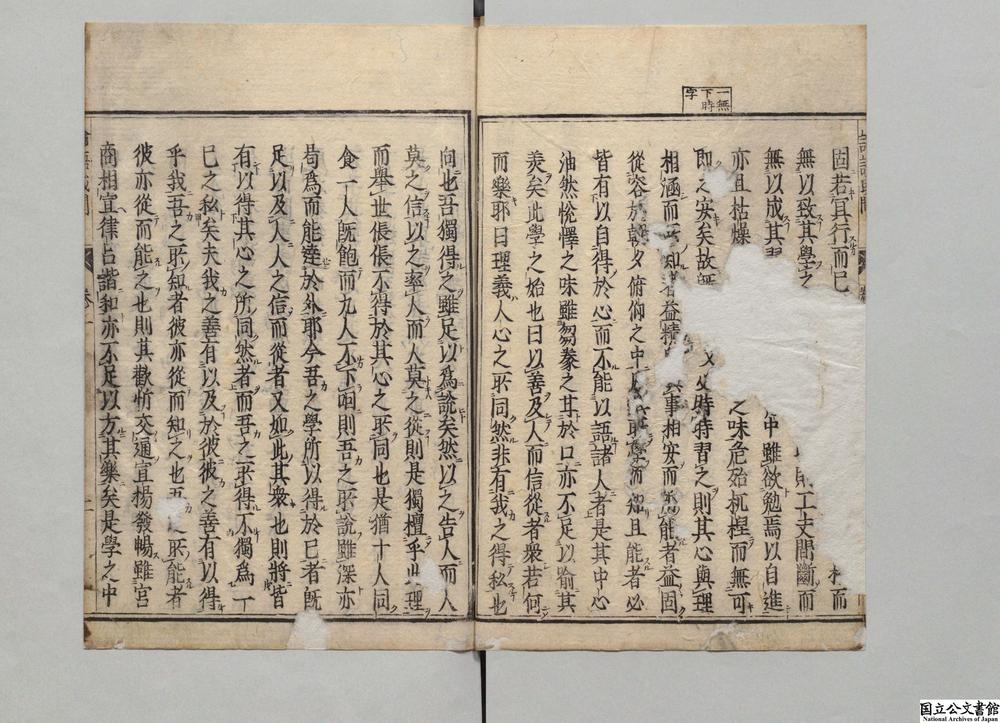 一無下時字
固若冥行而已 而
無以致其學之 則工夫間斷而
無以成其習 中雖欲勉焉以自進
亦且枯燥 之味危殆杌楻而無可
即之安矣故無 時時習之則其心與理
相涵而所知者益精 事相安而所能者益固
從容於朝夕俯仰之中 所學而知且能者必
皆有以自得於心而不能以語諸人者是其中心
油然悅懌之味雖芻豢之甘於口亦不足以喻其
美矣此學之始也曰以善及人而信從者衆若何
而樂耶曰理義人心之所同然非有我之得私也
向也吾獨得之雖足以爲說矣然以之告人而人
莫之信以之率人而人莫之從則是獨擅乎此理
而舉世倀倀不得於其心之所同也是猶十人同
食一人既飽而九人不下咽則吾之所說雖深亦
曷爲而能達於外耶今吾之學所以得於已者既
足以及人人之信而從者又如此其衆也則將皆
有以得其心之所同然者而吾之所得不獨爲一
已之私矣夫我之善有以及於彼彼之善有以得
乎我吾之所知者彼亦從而知之也吾之所能者
彼亦從而能之也則其歡忻交通宣揚發暢雖宮
商相宣律呂諧和亦不足以方其樂矣是學之中
國立公文書館
National Archives of Japan